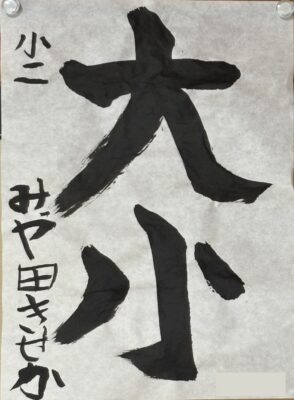 大小
小二
みや田きせか